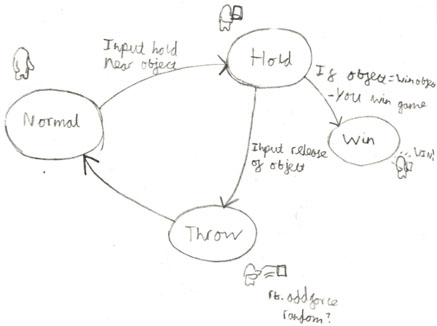 Input hold
Near object
Hold
If object = winobjec
- You win game
Normal
Win
WIN!
Input release
of object
Throw
rb. addforce
random?